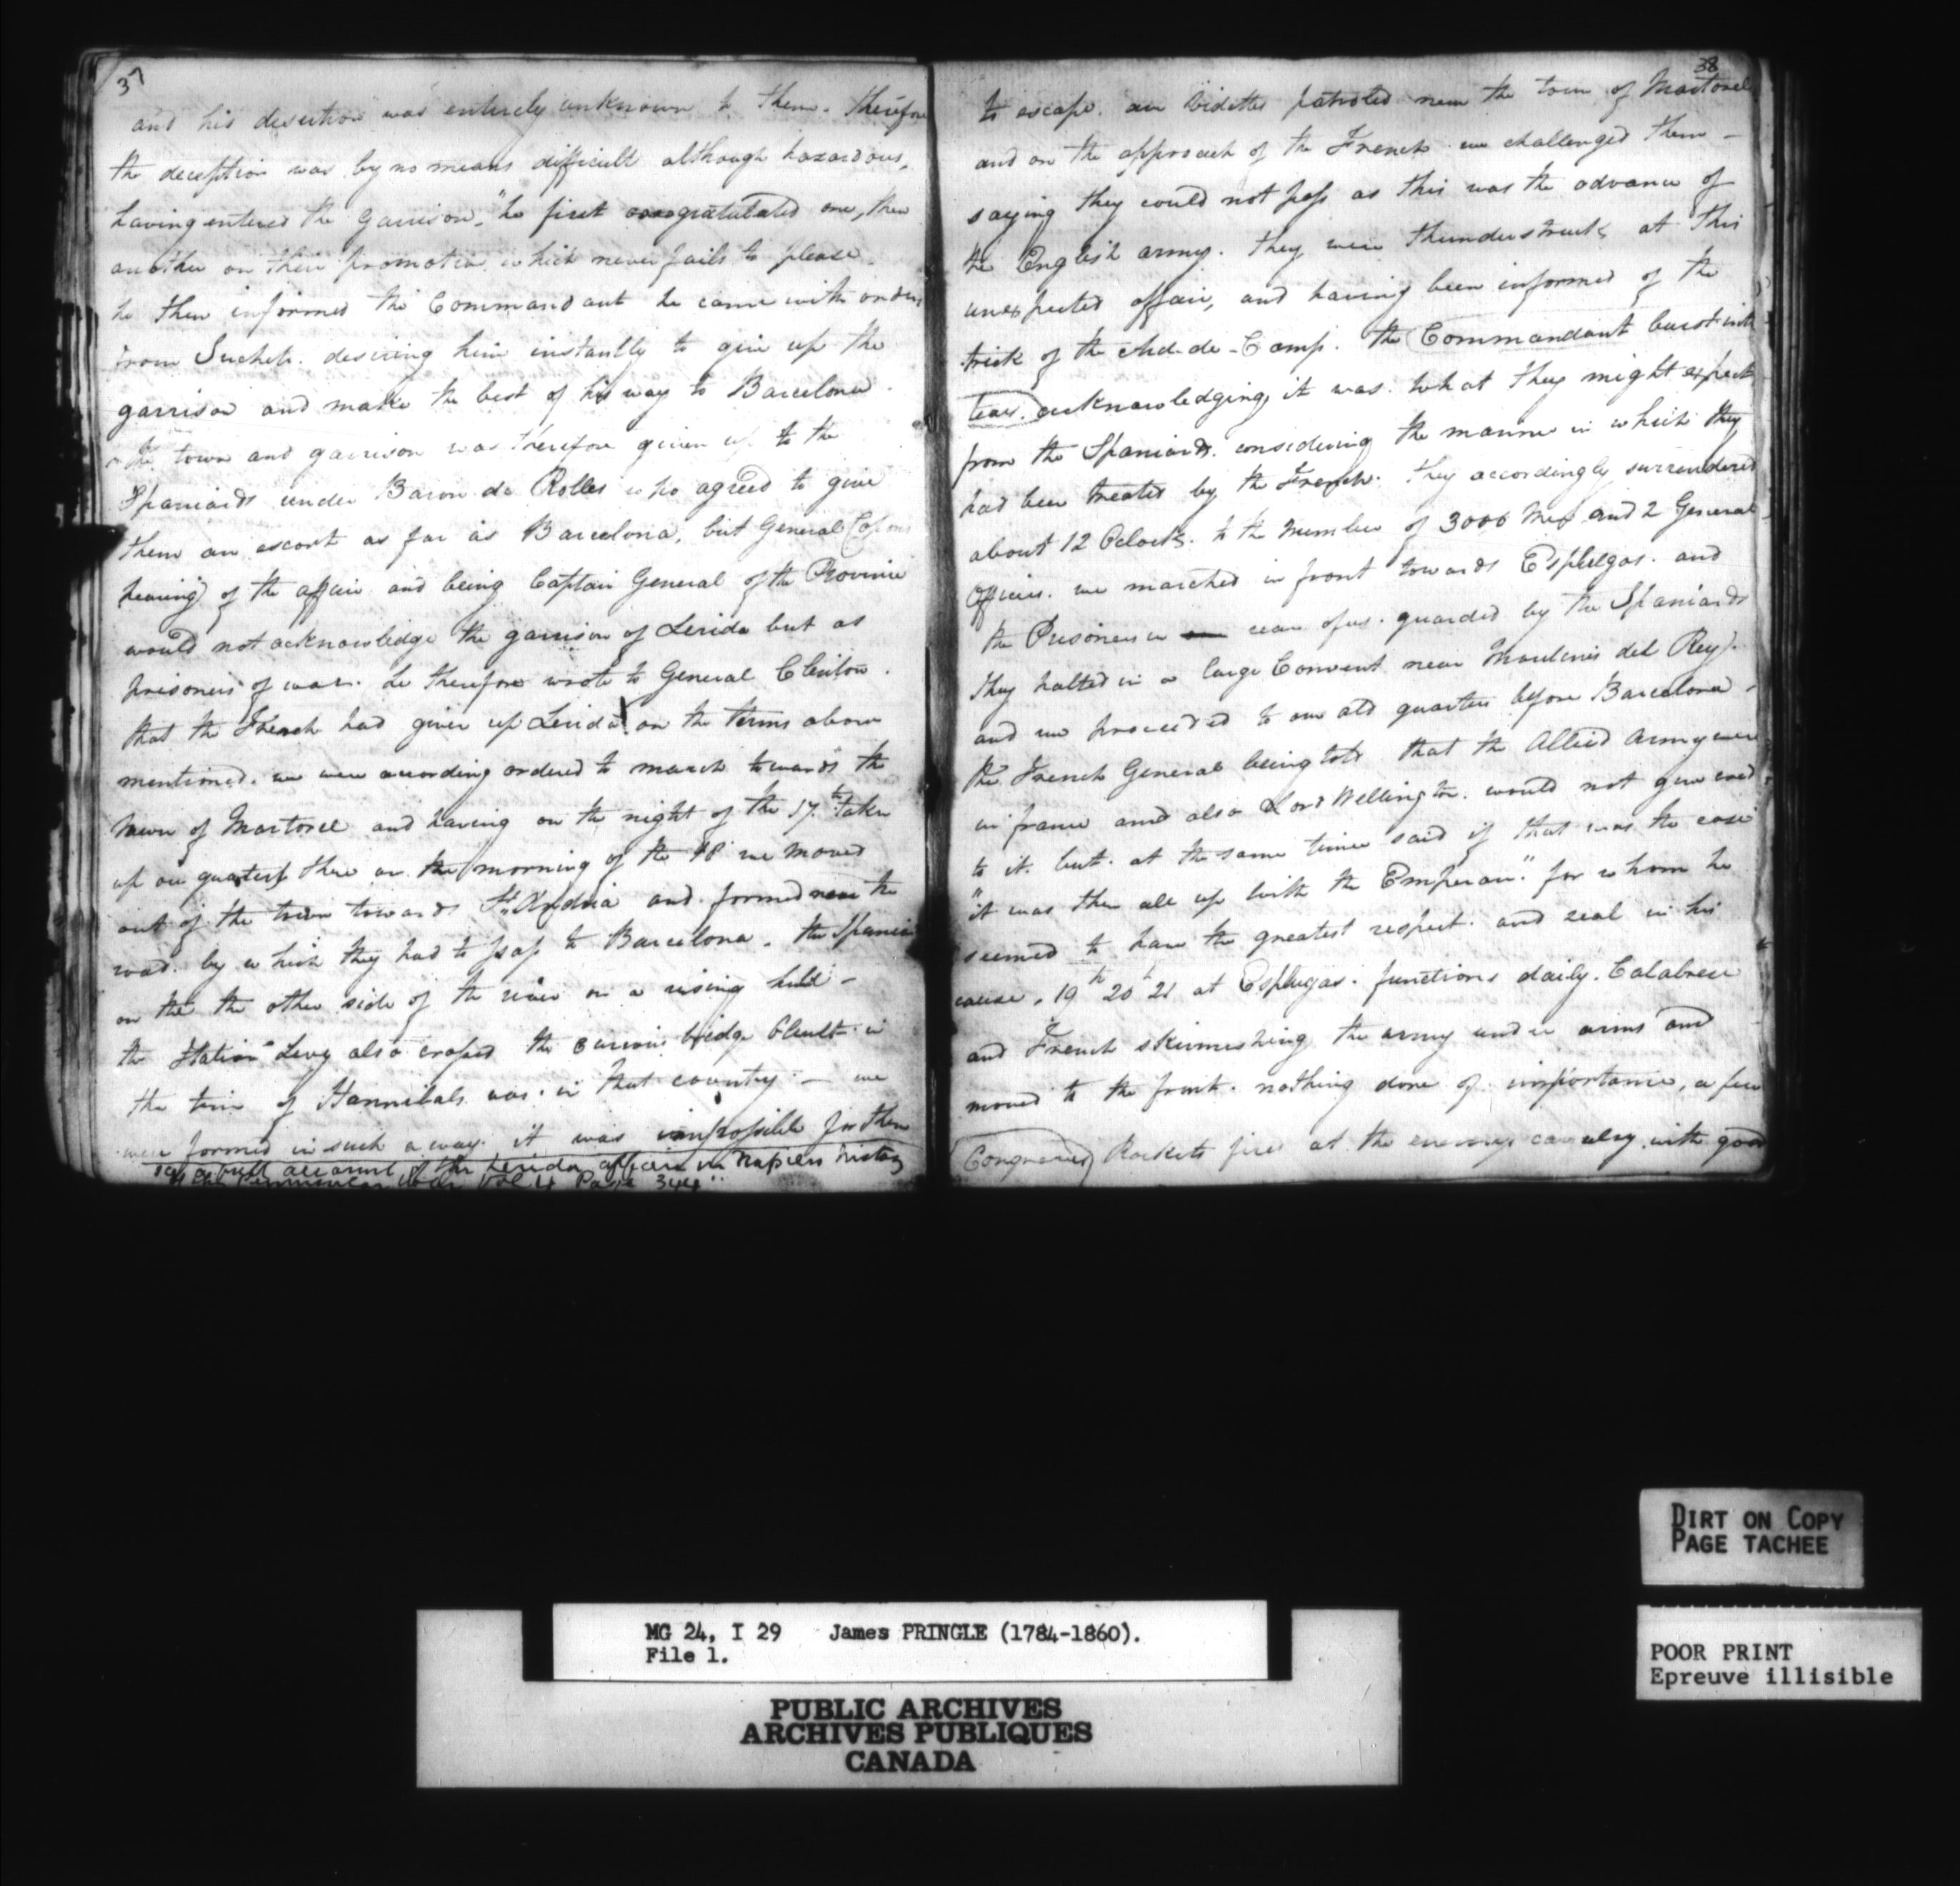 37
and his desertion was entirely unknown to them. Therefore
the deception was by no means difficult although hazardous,
having entered the Garrison, "he first congratulated one, then
another on their promotion which never fails to please.
he then informed the Commandant he came with orders
from Suchet. desiring him instantly to give up the
garrison and make the best of his way to Barcelona.
the town and garrison was therefore given up to the
Spaniards under Baron de Rolles who agreed to give
them an escort as far as Barcelona, but General Copons
hearing of the affair and being Captain General of the Province
would not acknowledge the garrison of Lerida but as
prisoners of war. he therefore wrote to General Clinton.
that the French had given up Lerida on the terms above
mentioned. we were according ordered to march towards the
town of Martorel and having on the night of the 17th taken
up our quarters there on the morning of the 18 we moved
out of the town towards St. Andria and formed near the
road. by which they had to pass to Barcelona. the Spaniards
on the the other side of the river on a rising hill -
the Italian Levy also crossed the curious bridge built in
the time of Hannibals was in that country - we
were formed in such a way. it was impossible for them
see a full account of the Lerida affair in Napiers history
of the Peninsular War Vol 4 Page 344"
38
to escape. our Videttes patroled near the town of Martorel
and on the approach of the French we challenged them -
saying they could not pass as this was the advance of
the English army. they were thunderstruck at this
unexpected affair, and having been informed of the
trick of the Aid-de-Camp. the Commandant burst into
tears. acknowledging it was what they might expect
from the Spaniards. considering the manner in which they
had been treated by the French. They accordingly surrendered
about 12 Oclock. to the number of 3000 Men and 2 General
Officers. we marched in front towards Esplugas. and
the Prisoners in rear of us. guarded by the Spaniards
They halted in a large Convent near Moulines del Rey.
and we proceeded to our old quarters before Barcelona -
the French General being told that the Allied Army were
in france and also Lord Wellington. would not give cred
to it. but at the same time said if that was the case
"it was then all up with the Emperor." for whom he
seemed to have the greatest respect. and zeal in his
cause. 19th 20 21 at Esplugas. functions daily. Calabrese
and French skirmishing the army under arms and
moved to the front. nothing done of importance, a few
Congreves Rockets fired at the enemys cavalry with good
DIRT ON COPY
PAGE TACHEE
POOR PRINT
Epreuve illisible
MG 24, I 29 James PRINGLE (1784-1860).
File 1.
PUBLIC ARCHIVES
ARCHIVES PUBLIQUES
CANADA